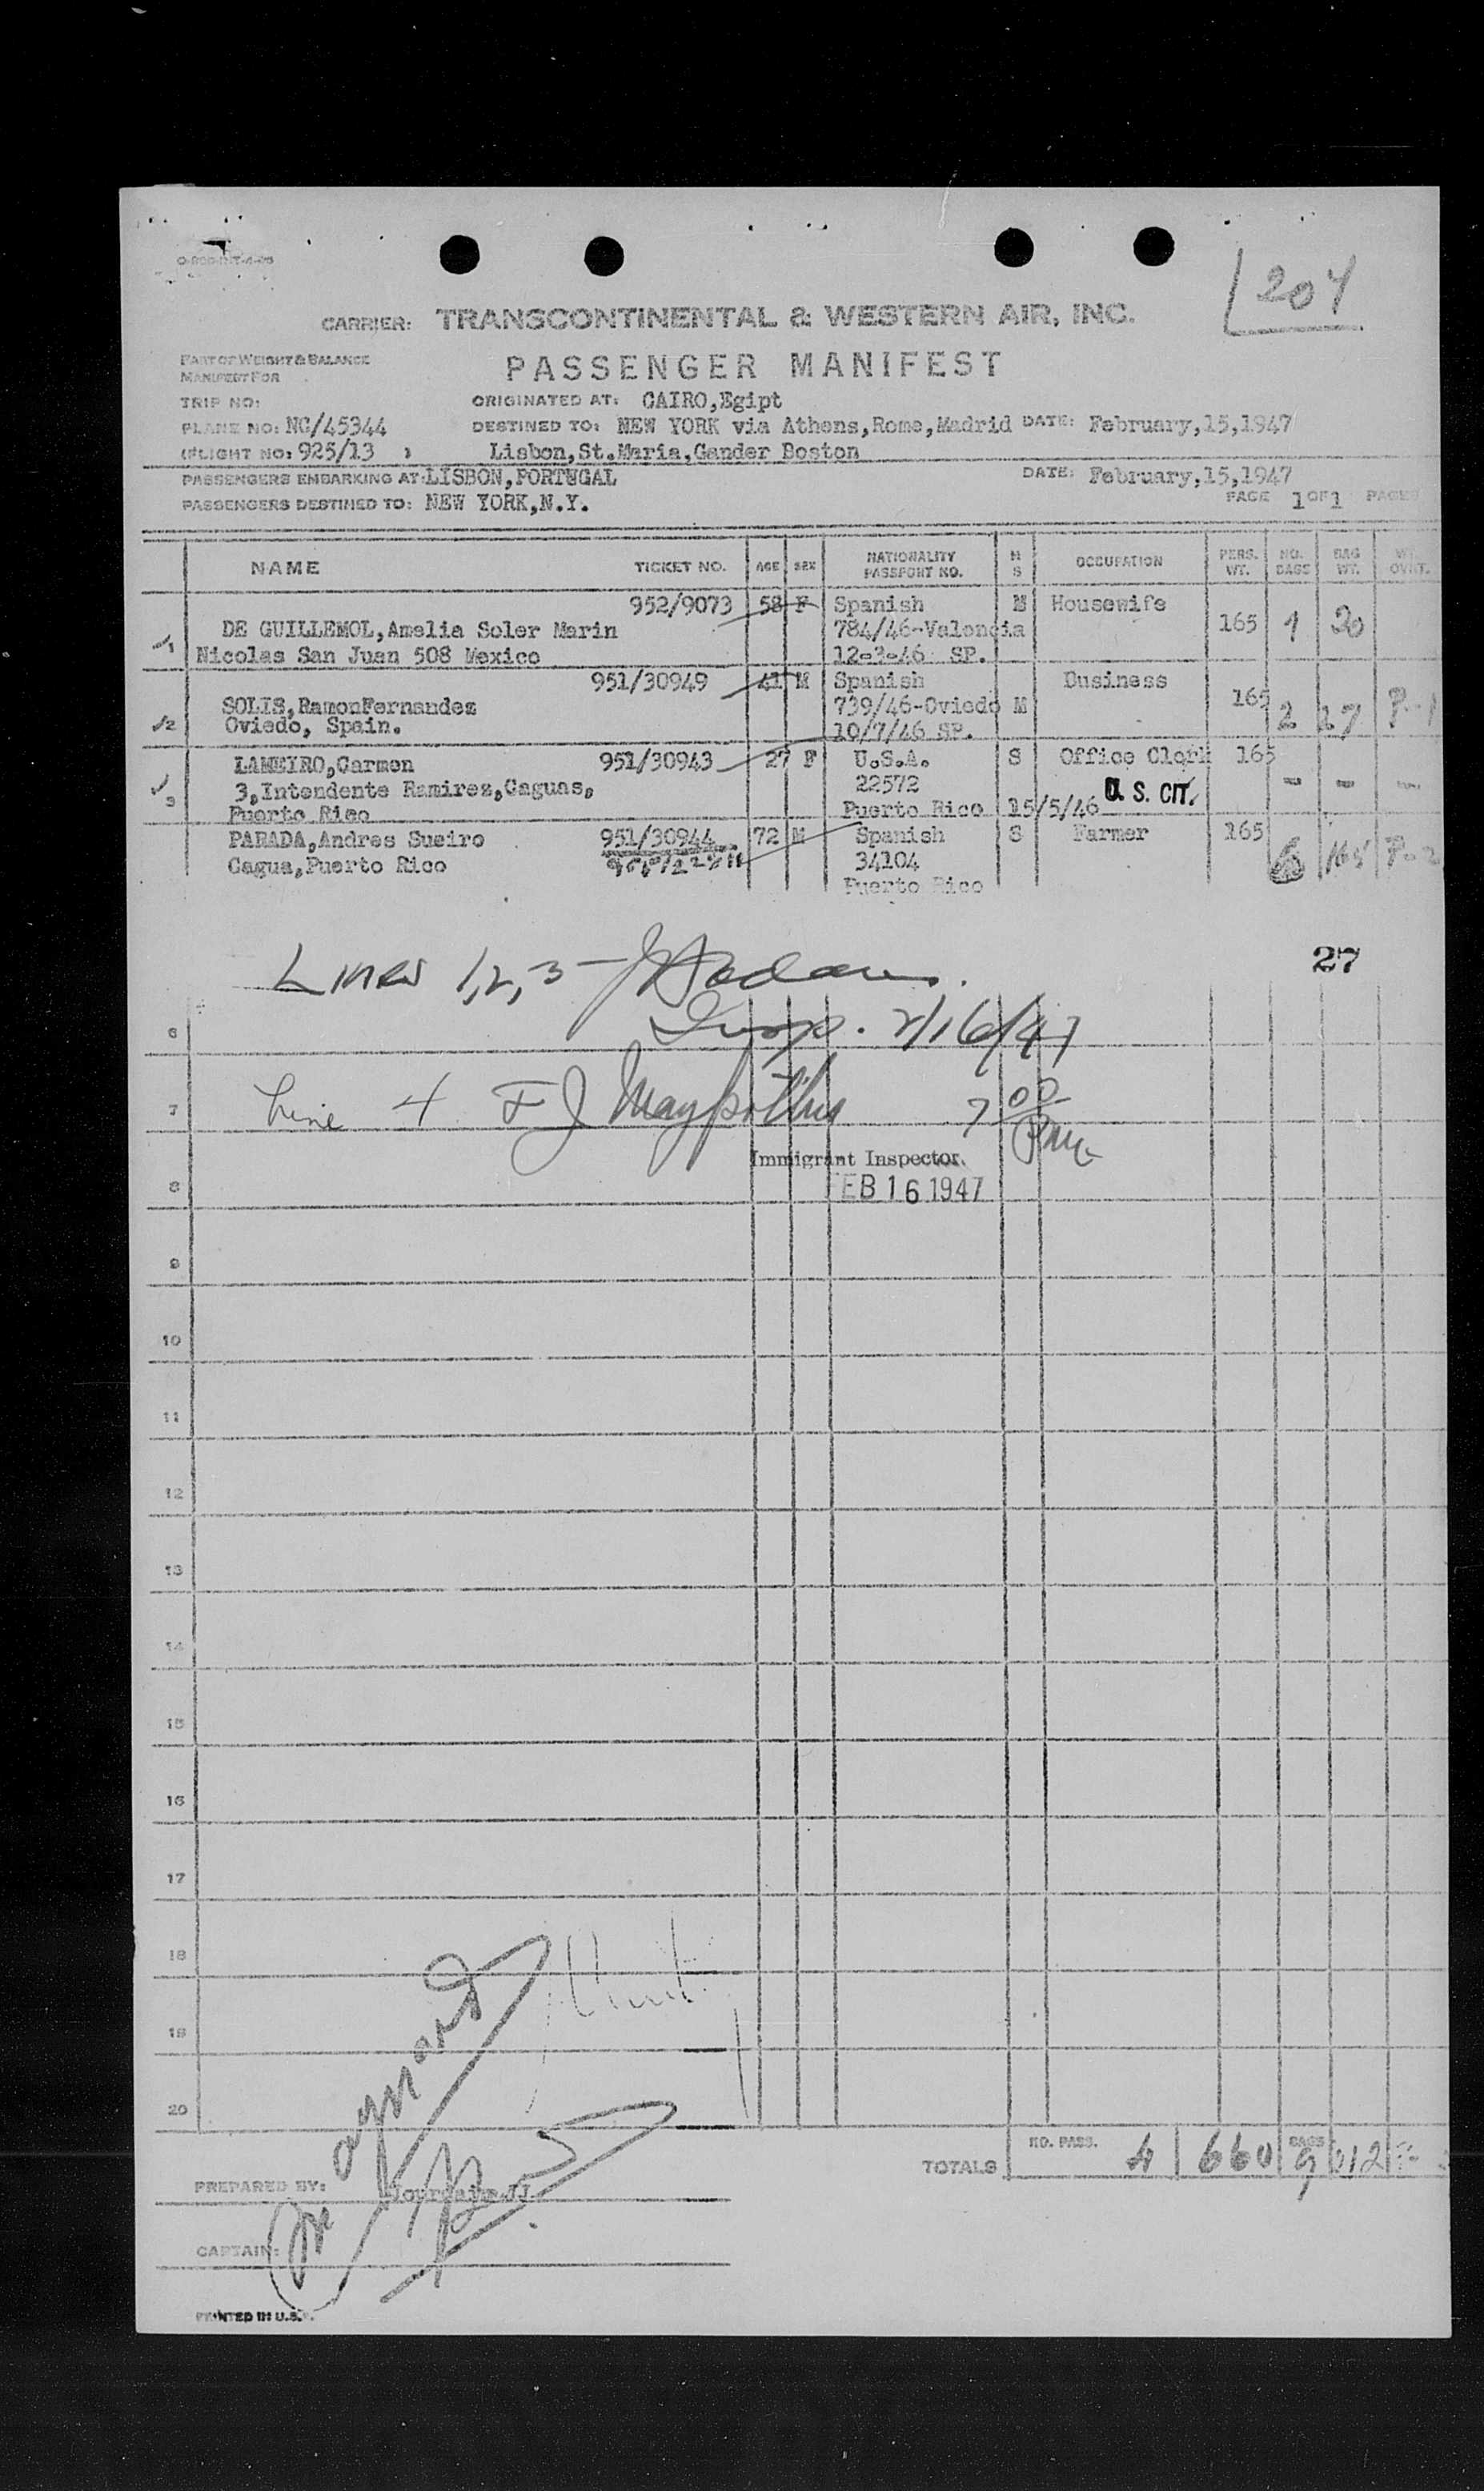 204
CARRIER: TRANSCONTINENTAL & WESTERN AIR, INC.
PART OF WEIGHT & BALANCE
MANIFEST FOR
PASSENGER MANIFEST
TRIP NO: ORIGINATED AT: CAIRO,Egipt
PLANE NO: NC/45344 DESTINED TO: NEW YORK via Athens,Rome,Madrid DATE: February,15,1947
(FLIGHT NO: 925/13 ) Lisbon,St.Maria,Gander Boston
PASSENGERS EMBARKING AT: LISBON,PORTUGAL DATE: February,15,1947
PASSENGERS DESTINED TO: NEW YORK,N.Y. PAGE 1 OF 1 PAGES
NAME TICKET NO. AGE SEX NATIONALITY PASSPORT NO. M S OCCUPATION PERS. WT. NO. BAGS BAG WT. WT. OVHT.
952/9073 58 F Spanish M Housewife
1 DE GUILLEMOL,Amelia Soler Marin 784/46-Valencia 165 1 20
Nicolas San Juan 508 Mexico 12-3-46 SP.
951/30949 41 M Spanish Business
SOLIS,RamonFernandez 739/46-Oviedo M 165 2 27 P-1
2 Oviedo, Spain. 10/7/46 SP.
LAMEIRO,Carmen 951/30943 27 F U.S.A. S Office Clerk 165
3 3,Intendente Ramirez,Caguas, 22572 U. S. CIT. - - -
Puerto Rico Puerto Rico 15/5/46
PARADA,Andres Sueiro 951/30944 72 M Spanish S Farmer 165
Cagua,Puerto Rico 34104 6 165 P-2
Puerto Rico
27
Lines 1,2,3-
6 Insp. 2/16/47
7 Line 4 F J 7 00
PM
Immigrant Inspector.
8 FEB 16 1947
9
10
11
12
13
14
15
16
17
18
19
20
TOTALS NO. PASS. 4 660 BAGS 9
PREPARED BY:
CAPTAIN:
PRINTED IN U.S.